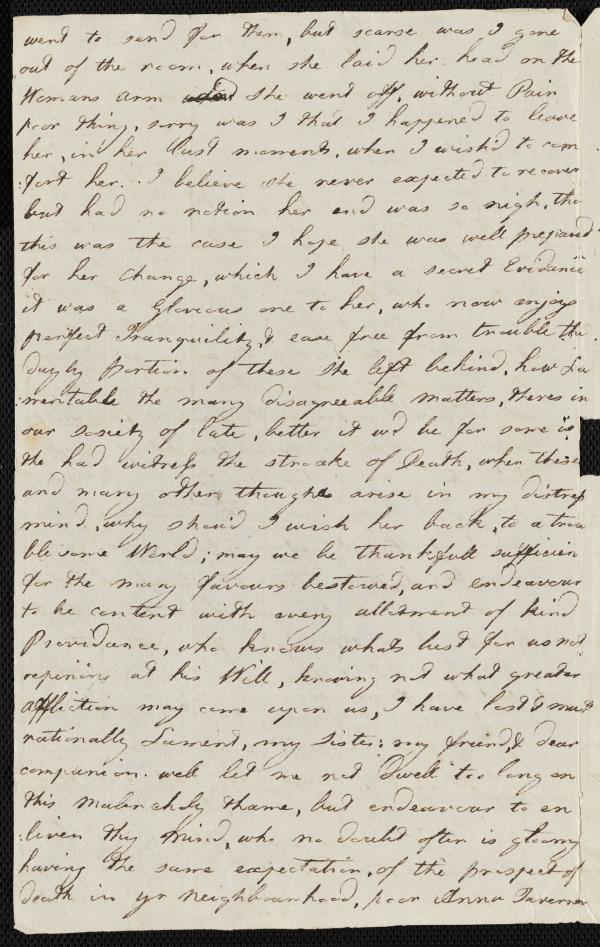 went to send for them, but scarse was I gone
out of the room, when she laid her head on the
Womans arm she went off, without Pain
poor thing, sorry was I that I happened to leave
her, in her last moments, when I wish'd to com
:fort her. I believe she never expected to recover
but had no notion her end was so nigh, tho
this was the case I hope she was well prepared
for her change, which I have a secret Evidance
it was a Glorious one to her, who now enjoys
perfect Tranquility, & ease free from trouble the
dayly portion of these she left behind, how La
:mentable the many disagreeable matters, theres in
our sosiety of late, better it wd be for some if
the had witness the stroake of Death, when these
and many other thoughts arise in my distress
mind, why shoud I wish her back, to a trou
blesome World; may we be thankfull sufficien
for the many favours bestowed, and endeavour
to be content with every allotment of kind
Providance, who knows whats best for us not
repining at his Will, knowing not what greater
affliction may come upon us, I have lost & must
rationally Lament, my Sister; my friend, & dear
companion. well let me not Dwell too long on
this malencholy thame, but endeavour to en
:liven thy mind, who no doubt often is gloomy
having the same expectation, of the prospect of
death in yr neighbourhood, poor Anna Taverner